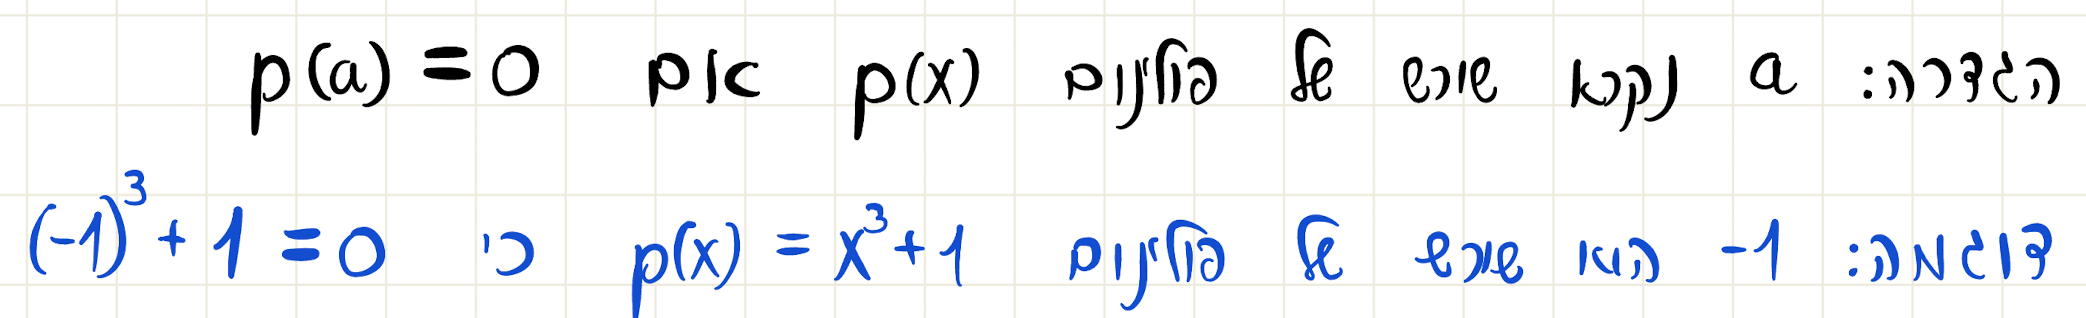 הגדרה: a נקרא שורש של פולינום p(x) אם p(a) = 0
דוגמה: -1 הוא שורש של פולינום p(x) = x³+1 כי (-1)³+1=0